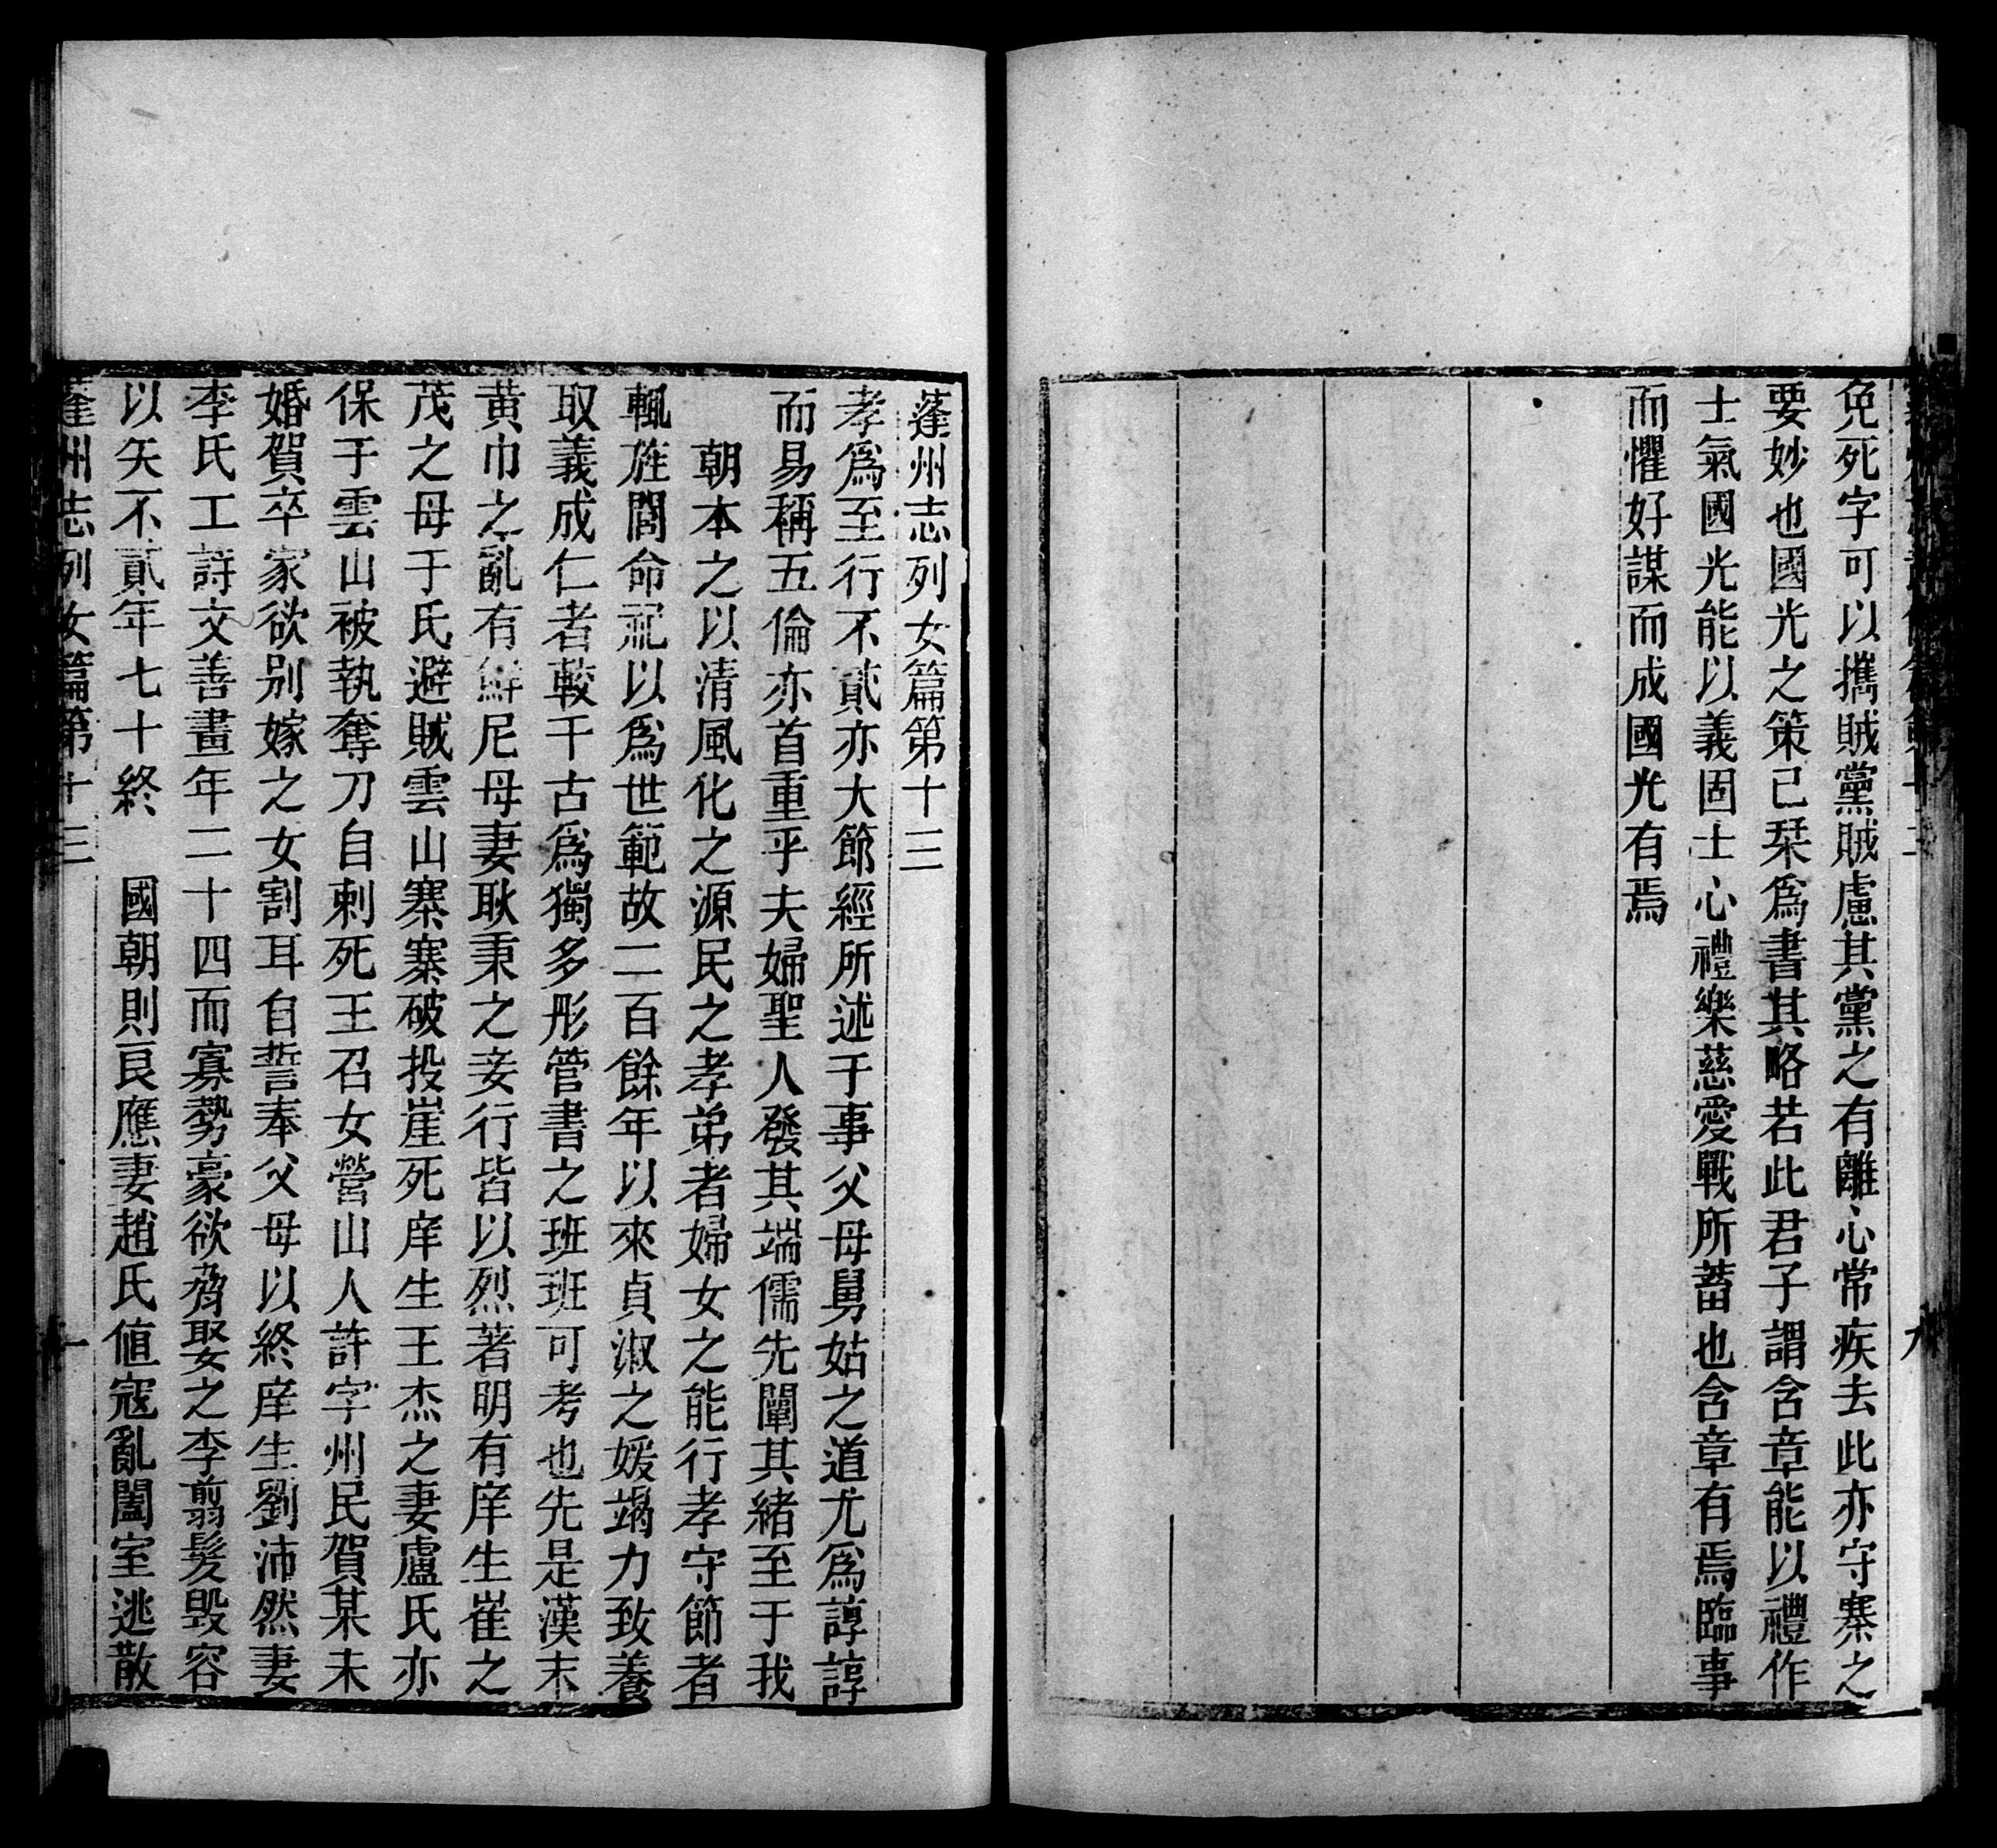 免死字可以攜賊黨賊慮其黨之有離心常疾去此亦守寨之
要妙也國光之策已栞爲書其略若此君子謂含章能以禮作
士氣國光能以義固士心禮樂慈愛戰所蓄也含章有焉臨事
而懼好謀而成國光有焉
九
蓬州志列女篇第十三
孝爲至行不貳亦大節經所述于事父母舅姑之道尤爲諄諄
而易稱五倫亦首重乎夫婦聖人發其端儒先闡其緒至于我
朝本之以清風化之源民之孝弟者婦女之能行孝守節者
輒旌閭命祀以爲世範故二百餘年以來貞淑之媛竭力致養
取義成仁者較千古爲獨多彤管書之班班可考也先是漢末
黃巾之亂有鮮尼母妻耿秉之妾行皆以烈著明有庠生崔之
茂之母于氏避賊雲山寨寨破投崖死庠生王杰之妻盧氏亦
保于雲山被執奪刀自刺死王召女營山人許字州民賀某未
婚賀卒家欲别嫁之女割耳自誓奉父母以終庠生劉沛然妻
李氏工詩文善畫年二十四而寡勢豪欲脅娶之李翦髮毀容
以矢不貳年七十終　國朝則艮應妻趙氏値寇亂闔室逃散
蓬州志列女篇第十三
一